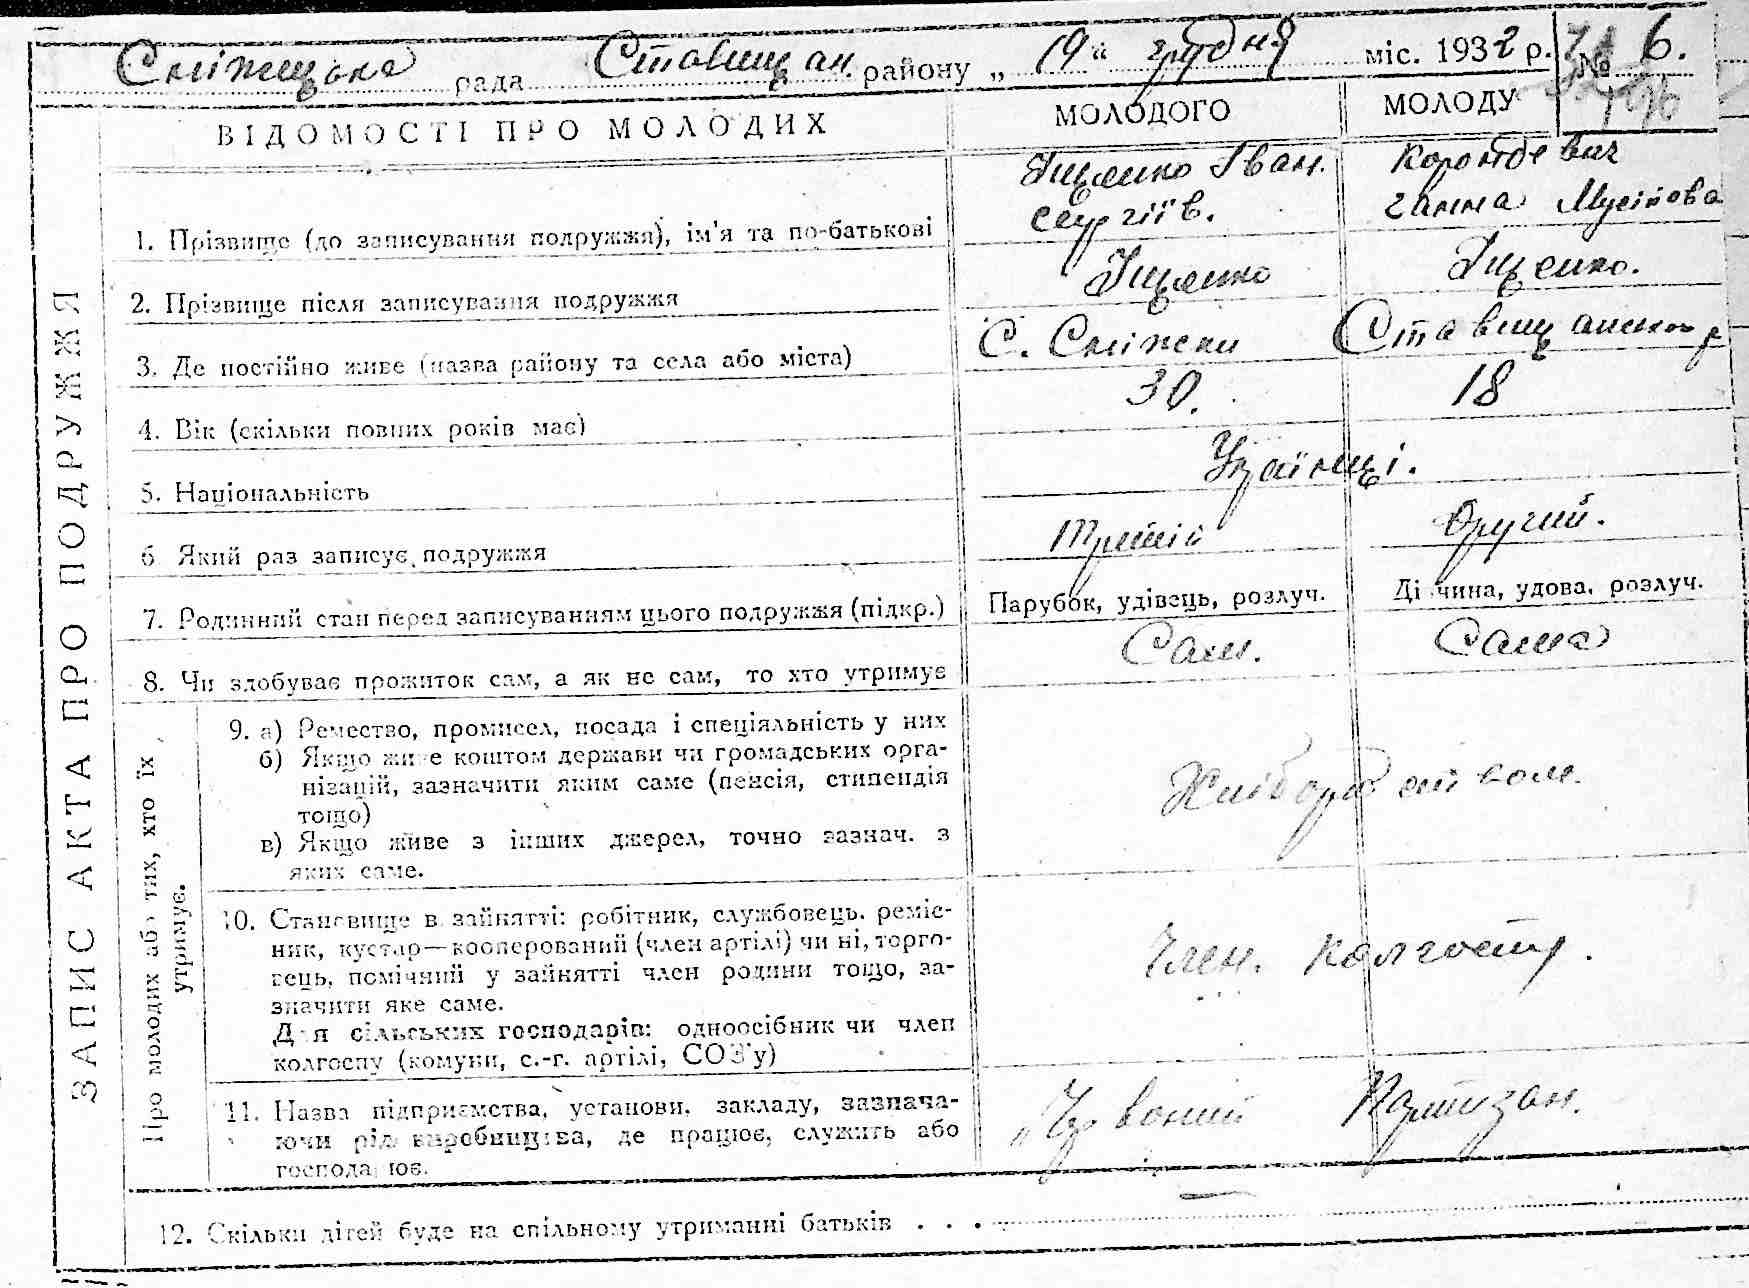 Сніжецька рада Ставищан. району „ 19 “ грудня міс. 1932 р. № 6.
ВІДОМОСТІ ПРО МОЛОДИХ МОЛОДОГО МОЛОДУ
1. Прізвище (до записування подружжя), ім'я та по-батькові Іщенко Іван. Сергіїв. Ганна Мусійова
2. Прізвище після записування подружжя Іщенко Іщенко.
3. Де постійно живе (назва району та села або міста) С. Сніжки Ставищанськ р
4. Вік (скільки повних років має) 30. 18
5. Національність Українці.
6 Який раз записує подружжя третій другий.
7. Родинний стан перед записуванням цього подружжя (підкр.) Парубок, удівець, розлуч. Дівчина, удова, розлуч.
8. Чи здобуває прожиток сам, а як не сам, то хто утримує Сам. Сама
ЗАПИС АКТА ПРО ПОДРУЖЖЯ
Про молодих або тих, хто їх утримує.
9. а) Ремество, промисел, посада і спеціяльність у них
б) Якщо живе коштом держави чи громадських орга-
нізацій, зазначити яким саме (пенсія, стипендія
тощо)
в) Якщо живе з інших джерел, точно зазнач. з
яких саме.
Хліборобством.
10. Становище в зайнятті: робітник, службовець, реміс-
ник, кустар—кооперований (член артілі) чи ні, торго-
вець, помічний у зайнятті член родини тощо, за-
значити яке саме.
Для сільських господарів: одноосібник чи член
колгоспу (комуни, с.-г. артілі, СОЗ'у)
Член. колгоспу.
11. Назва підприємства, установи, закладу, зазнача-
ючи рід виробництва, де працює, служить або
господарює.
„Червоний Партизан.
12. Скільки дітей буде на спільному утриманні батьків . . .